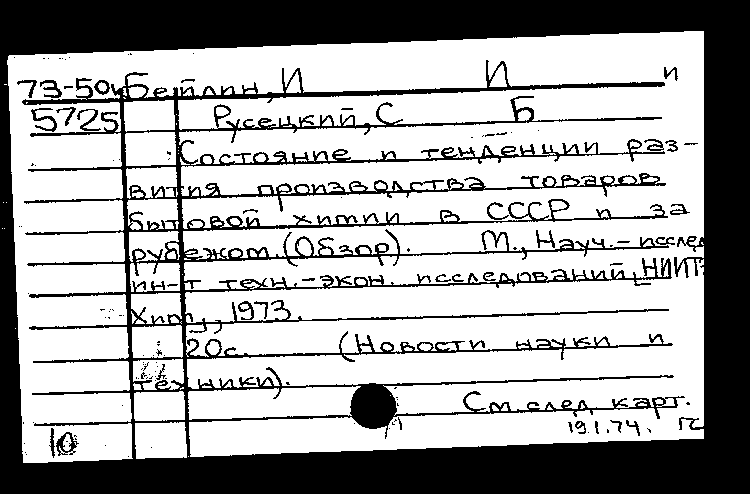 73-50ч Бейлин, И И и
5725 Русецкий, С Б
Состояние и тенденции раз-
вития производства товаров
бытовой химии в СССР и за
рубежом. (Обзор). М., Науч.-исслед
ин-т техн.-экон. исследований, НИИТЭ
Хим, 1973.
20с. (Новости науки и
техники).
См. след. карт.
19.1.74. ГС
10